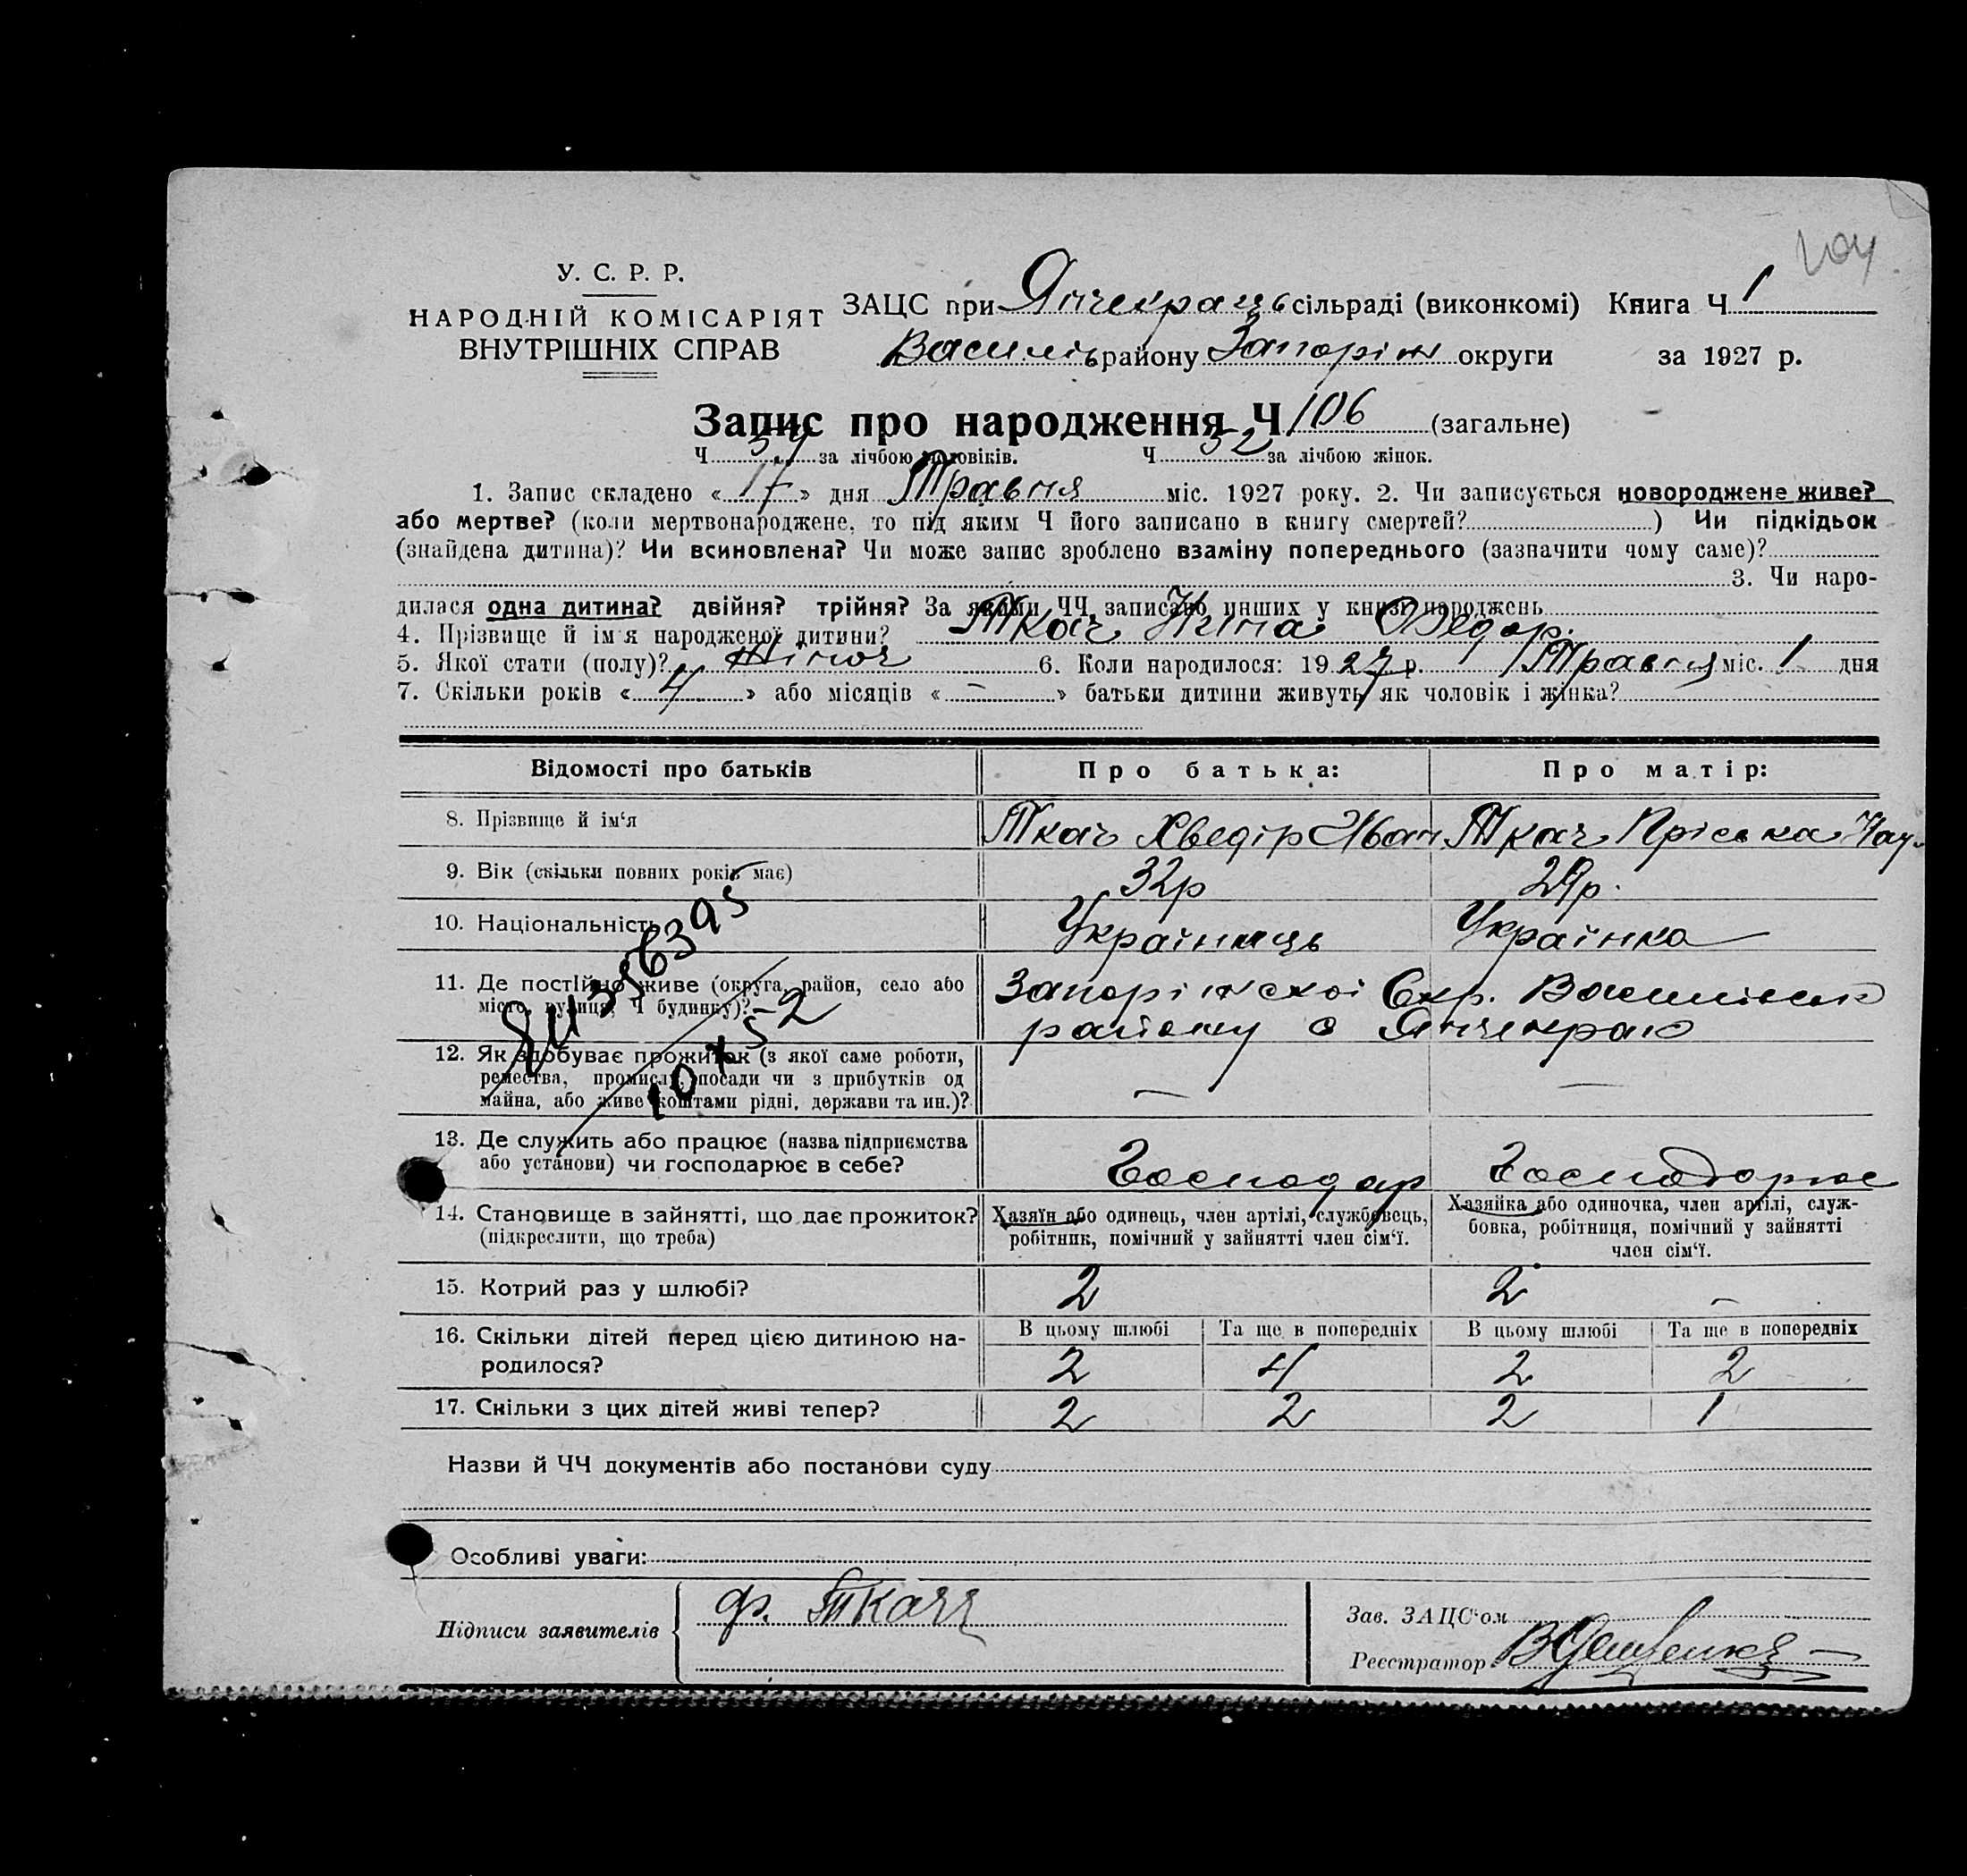 104
У. С. Р. Р.
НАРОДНІЙ КОМІСАРІЯТ
ВНУТРІШНІХ СПРАВ
ЗАЦС при Янчекраць сільраді (виконкомі) Книга Ч 1
Василів району Запоріж округи за 1927 р.
Запис про народження Ч 106 (загальне)
Ч за лічбою чоловіків. Ч 52 за лічбою жінок.
1. Запис складено « 17 » дня Травня міс. 1927 року. 2. Чи записується новороджене живе?
або мертве? (коли мертвонароджене, то під яким Ч його записано в книгу смертей? ) Чи підкідьок
(знайдена дитина)? Чи всиновлена? Чи може запис зроблено взаміну попереднього (зазначити чому саме)?
3. Чи наро-
дилася одна дитина? двійня? трійня? За якими ЧЧ записано инших у книзі народжень
4. Прізвище й ім'я народженої дитини? Ткач Нина Хведор.
5. Якої стати (полу)? Жіноч 6. Коли народилося: 1927 р. Травня міс. 1 дня
7. Скільки років « 4 » або місяців « — » батьки дитини живуть як чоловік і жінка?
Відомості про батьків Про батька: Про матір:
8. Прізвище й ім'я Ткач Хведір Иван Ткач Пріська Нау.
9. Вік (скільки повних років має) 32р 29р.
10. Національність Українець Українка
11. Де постійно живе (округа, район, село або
місто, вулиця, Ч будинку)?
Запоріжскої Окр. Василівськ
району с Янчекрак
12. Як здобуває прожиток (з якої саме роботи,
ремества, промислу, посади чи з прибутків од
майна, або живе коштами рідні, держави та ин.)? — —
13. Де служить або працює (назва підприємства
або установи) чи господарює в себе? Господар Господорює
14. Становище в зайнятті, що дає прожиток?
(підкреслити, що треба)
Хазяїн або одинець, член артілі, службовець,
робітник, помічний у зайнятті член сім'ї.
Хазяйка або одиночка, член артілі, служ-
бовка, робітниця, помічний у зайнятті
член сім'ї.
15. Котрий раз у шлюбі? 2 2 —
16. Скільки дітей перед цією дитиною на-
родилося?
В цьому шлюбі Та ще в попередніх В цьому шлюбі Та ще в попередніх
2 4 2 2
17. Скільки з цих дітей живі тепер? 2 2 2 1
Назви й ЧЧ документів або постанови суду
Особливі уваги:
Підписи заявителів ф. Ткач
Зав. ЗАЦС'ом
Реєстратор